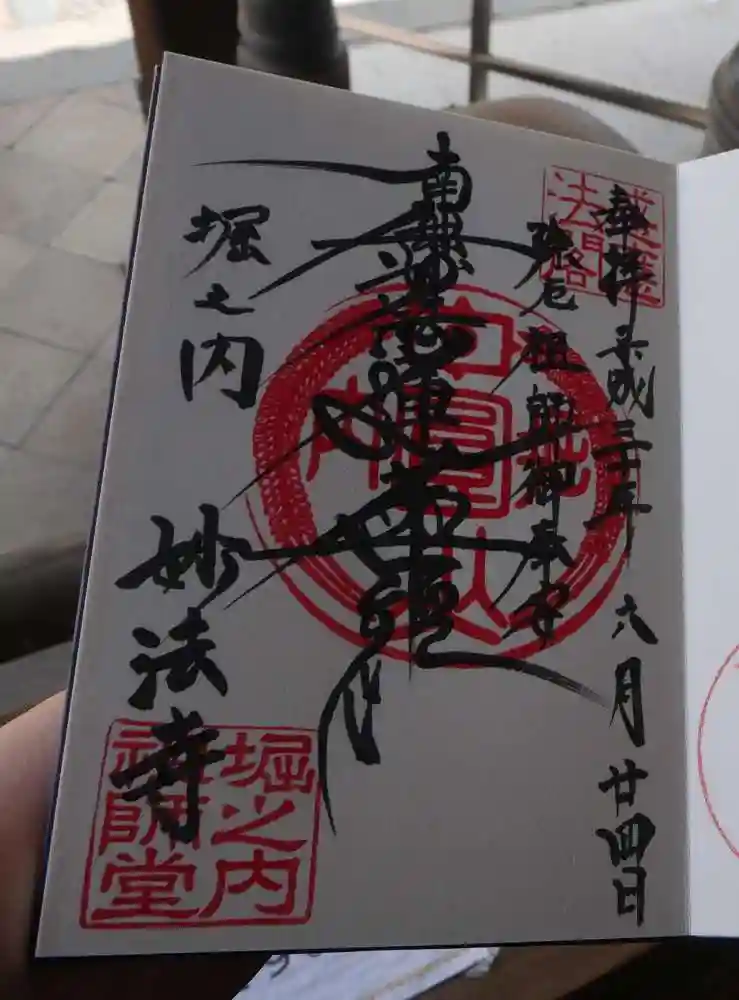 奉拝 平成三十年 六月廿四日
除厄祖師御奉安
南無妙法蓮華経
堀之内
妙法寺
堀之内
祖師堂